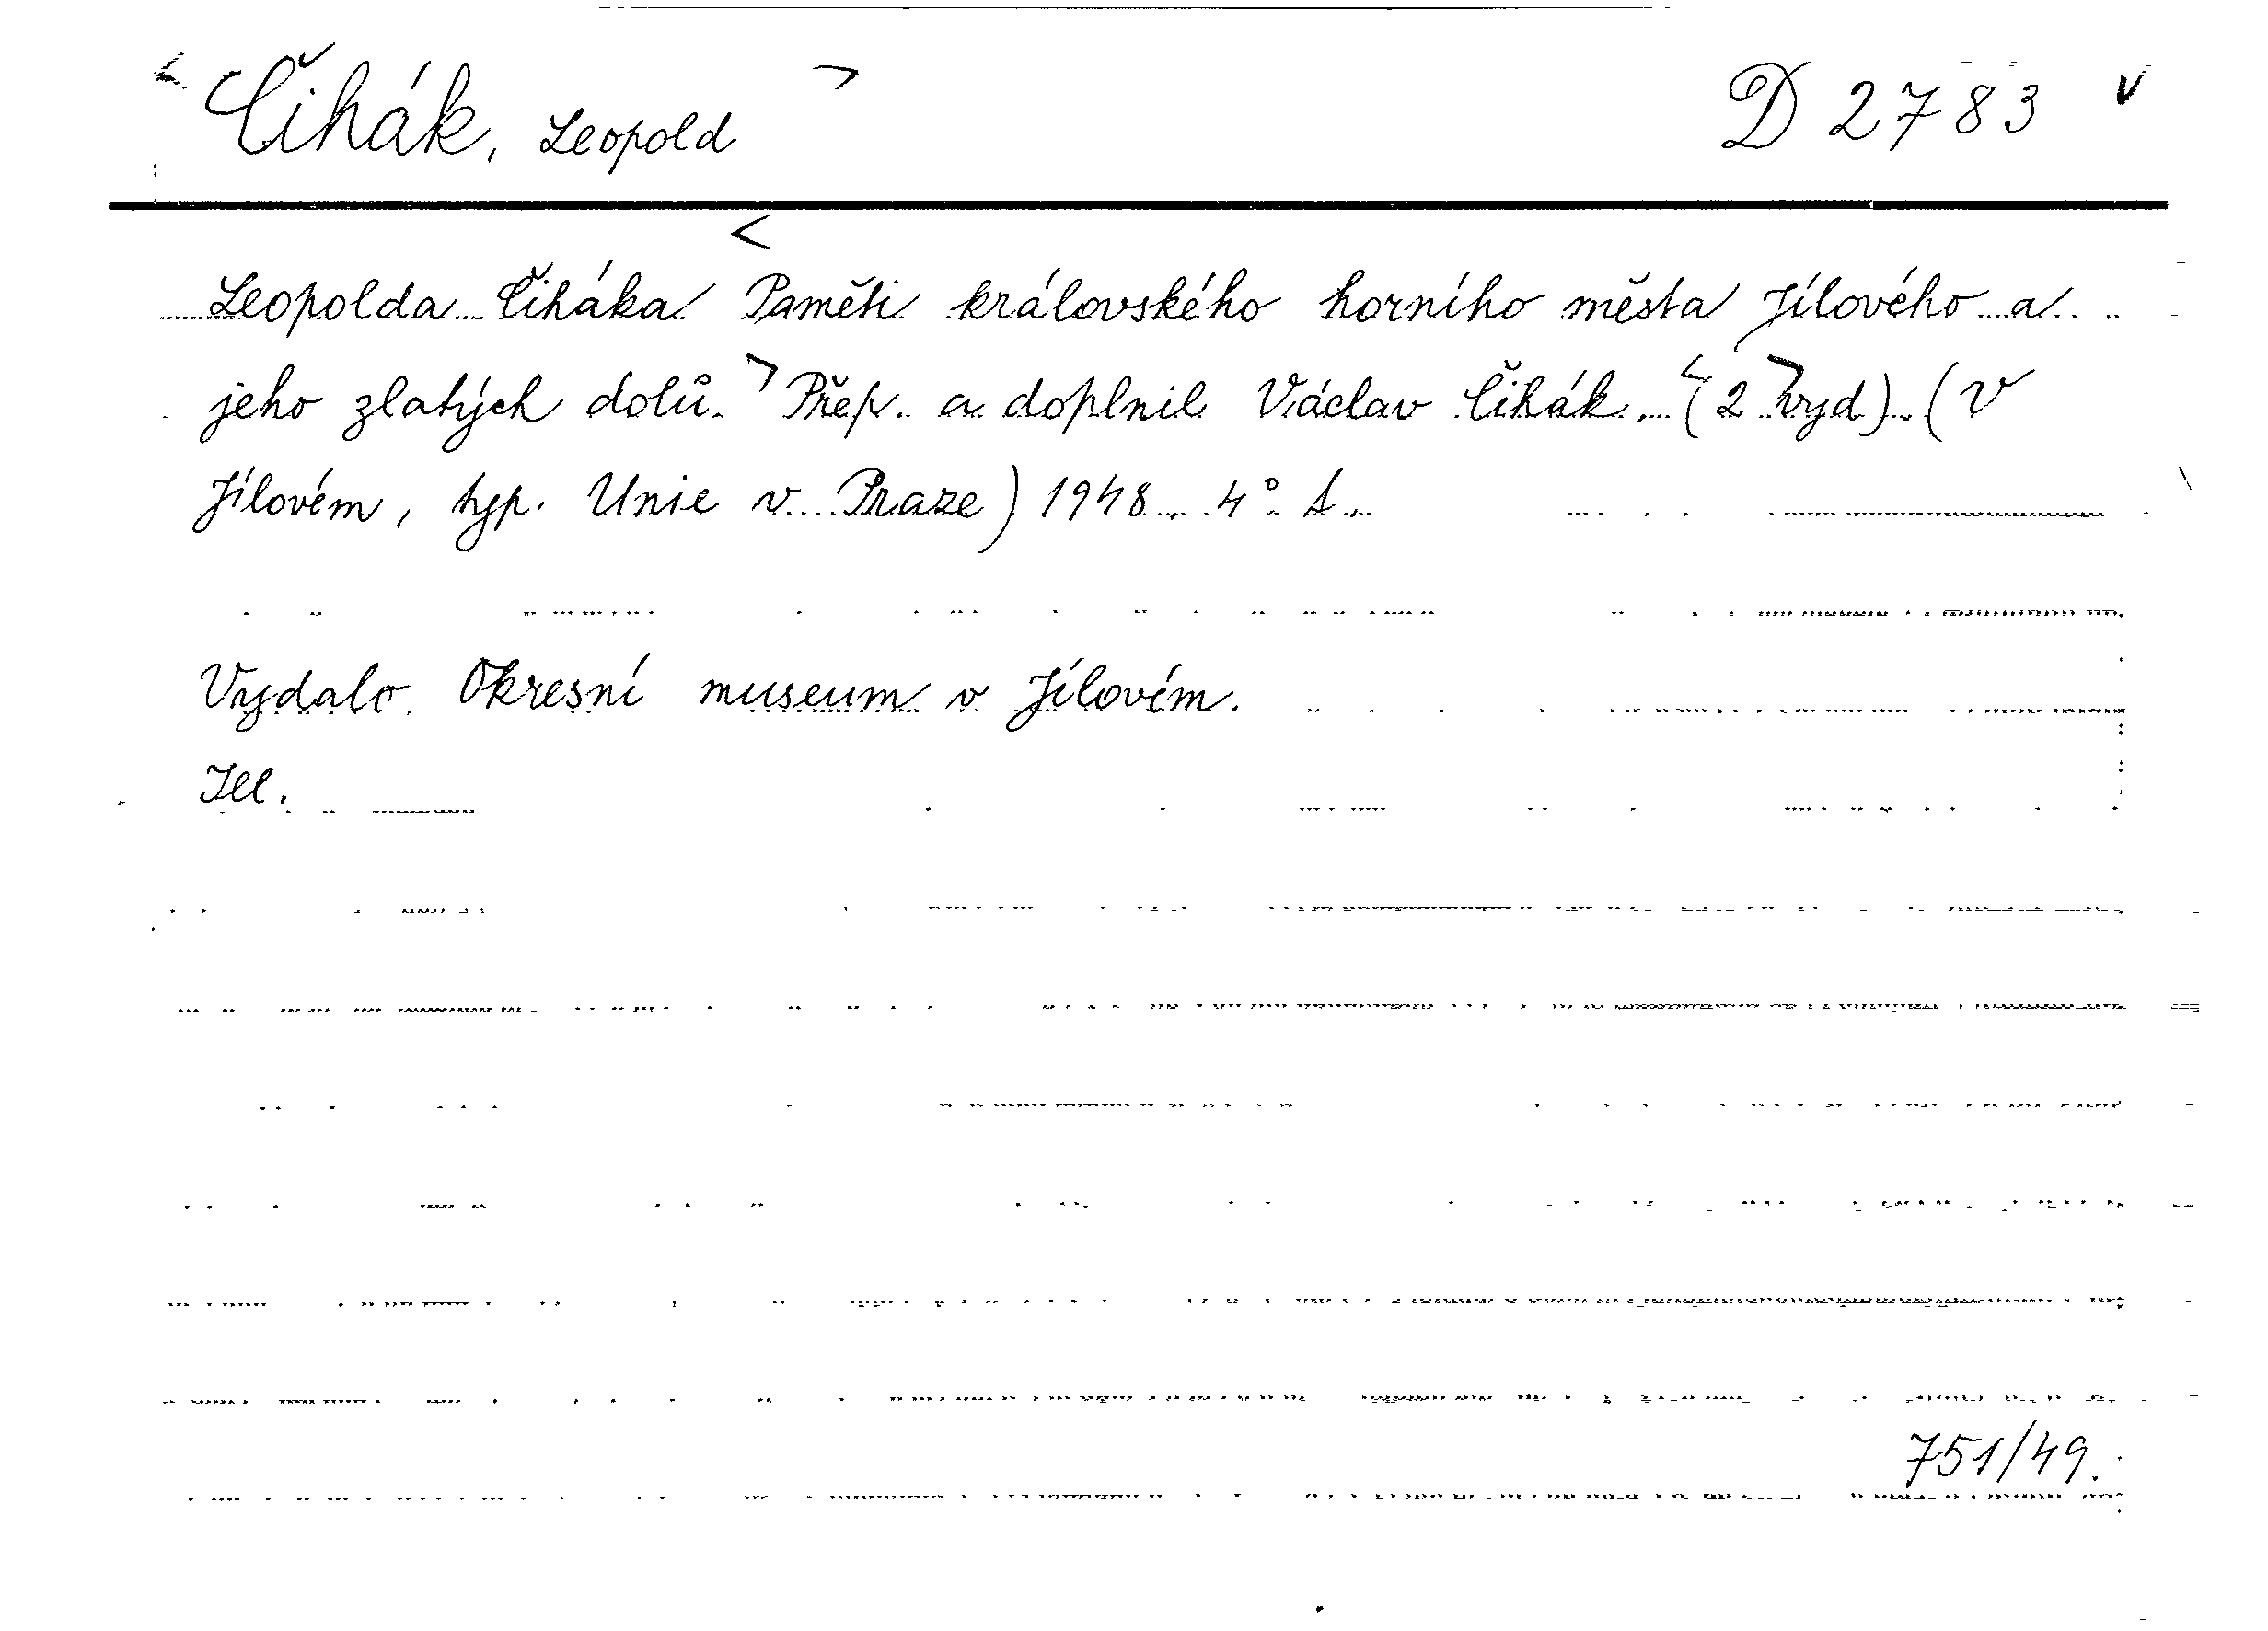 < Čihák, Leopold > D 2783 v
<
Leopolda Čiháka Paměti královského horního města Jílového a
jeho zlatých dolů. > Přep. a doplnil Václav Čihák. < (2 > vyd). (V
Jílovém, typ. Unie v Praze) 1948. 4° 1.
Vydalo Okresní museum v Jílovém.
Ill.
751/49.